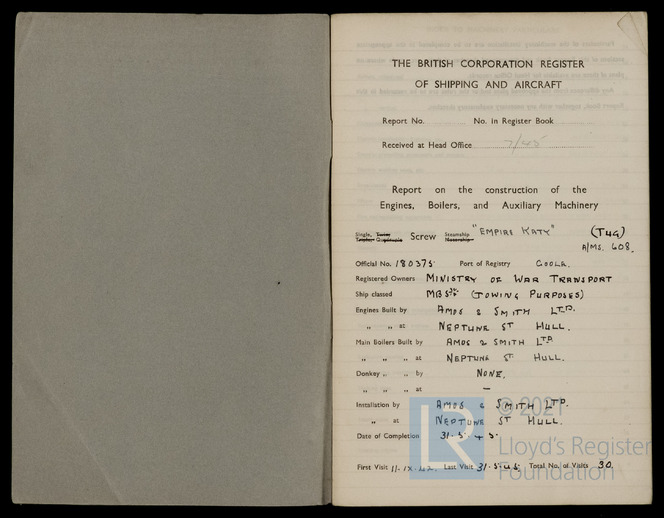 THE BRITISH CORPORATION REGISTER
OF SHIPPING AND AIRCRAFT
Report No. No. in Register Book
Received at Head Office 7/45
Report on the construction of the
Engines, Boilers, and Auxiliary Machinery
Single, Twin, Triple, Quadruple Screw Steamship Motorship "EMPIRE KATY" (TUG)
A/MS. 608.
Official No. 180375 Port of Registry GOOLE.
Registered Owners MINISTRY OF WAR TRANSPORT
Ship classed MBS* (TOWING PURPOSES)
Engines Built by AMOS & SMITH LTD.
„ „ at NEPTUNE ST HULL.
Main Boilers Built by AMOS & SMITH LTD
„ „ „ at NEPTUNE ST. HULL.
Donkey „ „ by NONE.
„ „ „ at —
Installation by AMOS & SMITH LTD.
„ at NEPTUNE ST HULL.
Date of Completion 31.5.45.
First Visit 11.IX.42. Last Visit 31.5.45. Total No. of Visits 30.
LR © 2021
Lloyd's Register
Foundation